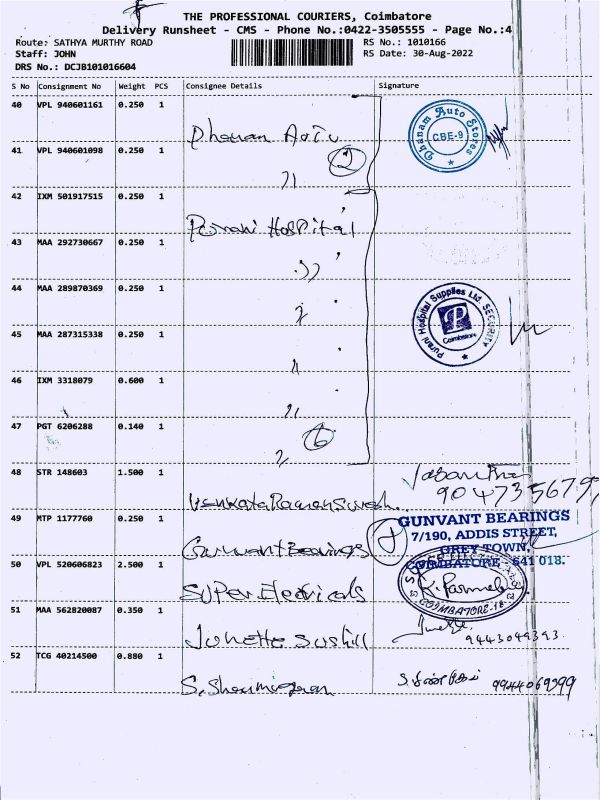 THE PROFESSIONAL COURIERS, Coimbatore
Delivery Runsheet - CMS - Phone No.:0422-3505555 - Page No.:4
Route: SATHYA MURTHY ROAD
RS No.: 1010166
Staff: JOHN
RS Date: 30-Aug-2022
DRS No.: DCJB101016604
S No Consignment No Weight PCS Consignee Details Signature
40 VPL 940601161 0.250 1
Dhanam Auto Stores
CBE-9
41 VPL 940601098 0.250 1
2
42 IXM 501917515 0.250 1
Purani Hospital
43 MAA 292730667 0.250 1
44 MAA 289870369 0.250 1
Purani Hospital Supplies Ltd. SECURITY
Coimbatore
45 MAA 287315338 0.250 1
46 IXM 3318079 0.600 1
47 PGT 6206288 0.140 1
6
48 STR 148603 1.500 1
Venkata Raman Suresh
49 MTP 1177760 0.250 1
Gunvant Bearings
GUNVANT BEARINGS
7/190, ADDIS STREET,
GREY TOWN,
COIMBATORE - 641 018.
50 VPL 520606823 2.500 1
Super Electricals
COIMBATORE-18
51 MAA 562820087 0.350 1
Junette Sushill
9443049393
52 TCG 40214500 0.880 1
9944069399